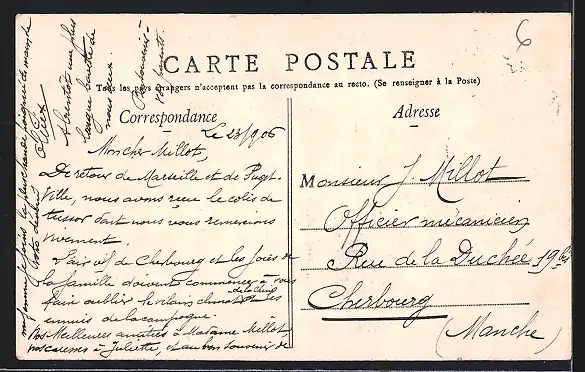 CARTE POSTALE
Tous les pays étrangers n'acceptent pas la correspondance au recto. (Se renseigner à la Poste)
Correspondance
Adresse
Le 23/9/06
Mon cher Millot,
De retour de Marseille et de Puget-
Ville, nous avons reçu le colis de
dont nous vous remercions
vivement.
L'air vif de Cherbourg et les joies de
la famille doivent commencer à vous
faire oublier le vilain climat de Cuers et les
ennuis de la campagne.
Nos Meilleures amitiés à Madame Millot
nos caresses à Juliette, et au bon souvenir de
vos parents.
A bientôt une plus
longue
nous deux.
Alex
Monsieur J. Millot
Officier mécanicien
Rue de la Duchée 19 bis
Cherbourg
(Manche)
6